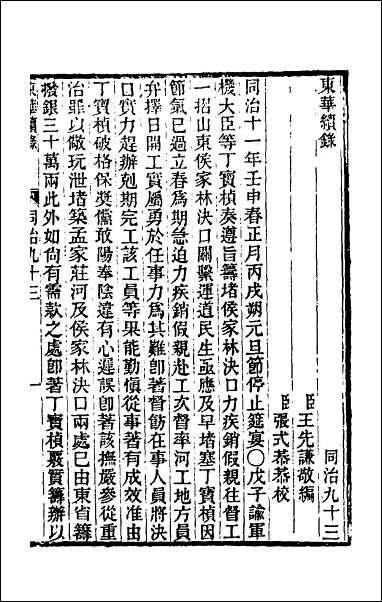 東華續錄
同治九十三
臣王先謙敬編
臣張式恭恭校
同治十一年壬申春正月丙戌朔元旦節停止筵宴○戊子諭軍
機大臣等丁寶楨奏遵旨籌堵侯家林決口力疾銷假親往督工
一招山東侯家林決口關繫運道民生亟應及早堵塞丁寶楨因
節氣已過立春為期急迫力疾銷假親赴工次督率河工地方員
弁擇日開工實屬勇於任事力為其難卽著督飭在事人員將決
口實力趕辦剋期完工該工員等果能勤慎從事著有成效准由
丁寶楨破格保獎儻敢陽奉陰違有心遲誤卽著該撫嚴參從重
治罪以儆玩泄堵築孟家莊河及侯家林決口兩處已由東省籌
撥銀三十萬兩此外如尙有需款之處卽著丁寶楨覈實籌辦以
東華續錄
同治九十三
一